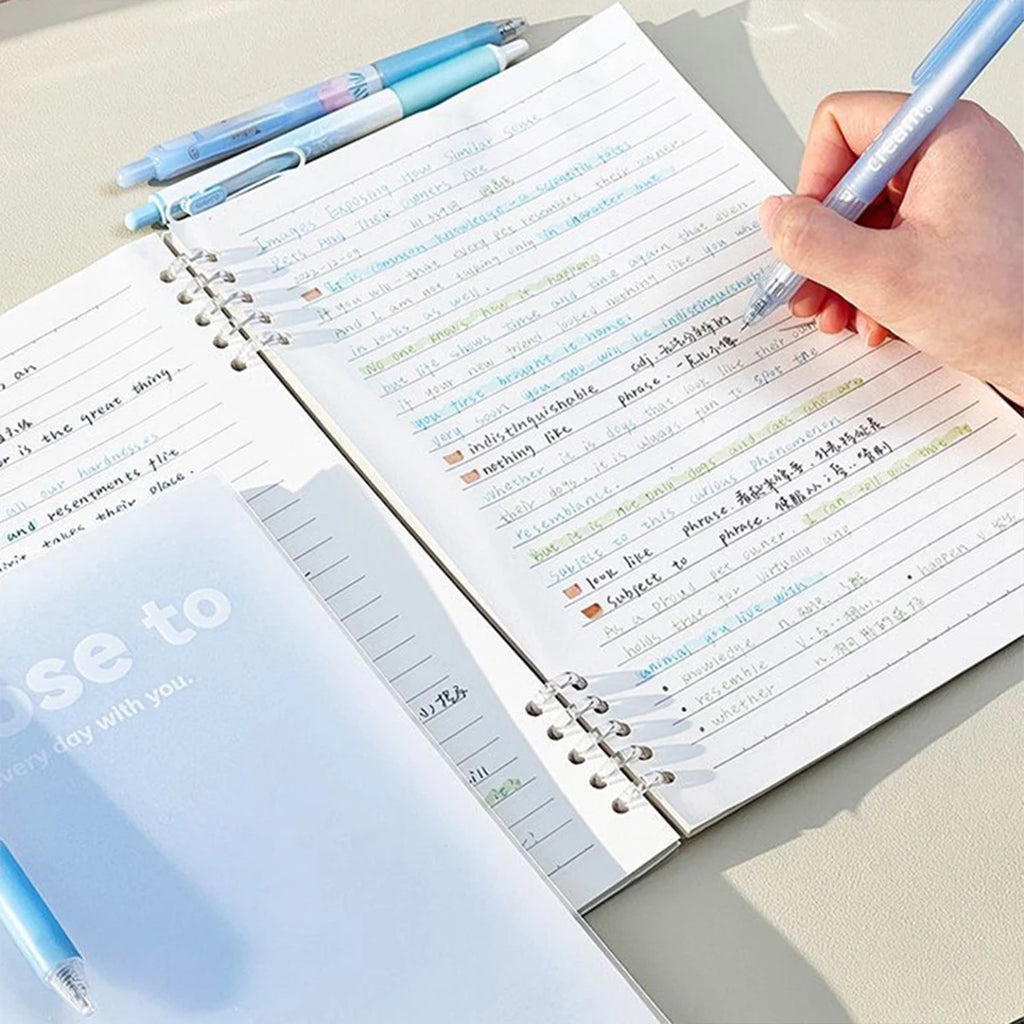 Images Exposing How Similar Some
Pets And Their Owners Are
2022-12-09
It is common knowledge-a scientific fact,
if you will - that every pet resembles their owner.
And I am not talking only in character but
in looks as well.
No one knows how it happens.
but life shows time and time again that even
if your new friend looked nothing like you when
you first brought it home,
very soon you two will be indistinguishable
indistinguishable adj. 无法分辨的
nothing like phrase.
Whether it is dogs that look like their own
their dogs, it is always fun to spot the
resemblance.
But it is not only dogs and cats who are
subject to this curious phenomenon
look like phrase.
subject to phrase.
As a proud pet owner, I can tell you that it
holds true for virtually any
animal you live with
knowledge n.
resemble v.
whether
happen v. 发生
s an
or is the great thing.
all our hardness
and resentments flit
takes their place.
ose to
every day with you.
cream.